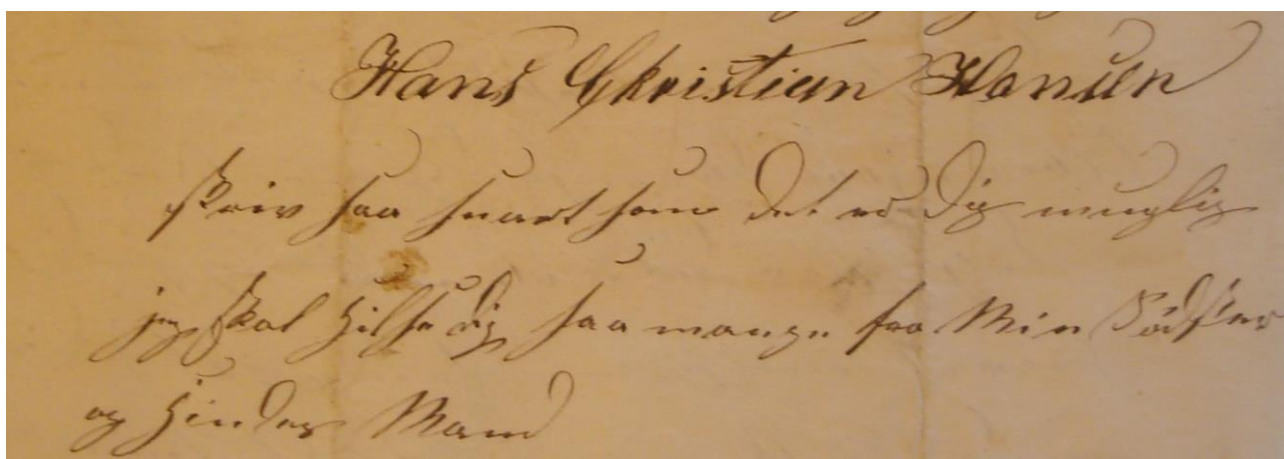 Hans Christian Hansen
skriv saa snart som det er dig muglig
jeg skal Hilse dig saa mange fra Min Södster
og Hindes Mand